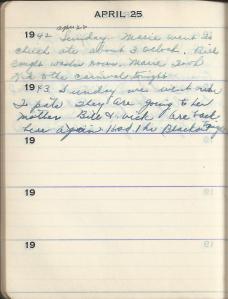 APRIL 25
april 26
1942 Sunday. Marie went to
church ate about 3 o'clock. Bill
caught washer room. Marie took
to the carnival tonight.
1943 Sunday we went over
to pats They are going to her
mother Bill & Dick are back
here again Had the Blackout
19
19
19